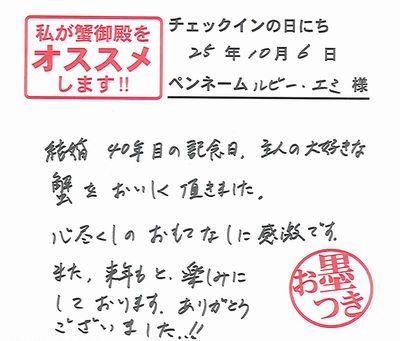 私が蟹御殿を
オススメ
します!!
チェックインの日にち
25年10月6日
ペンネーム ルビー・エミ 様
結婚 40年目の記念日、主人の大好きな
蟹をおいしく頂きました。
心尽くしのおもてなしに感激です。
また、来年もと、楽しみに
しております。ありがとう
ございました..!!
お墨つき